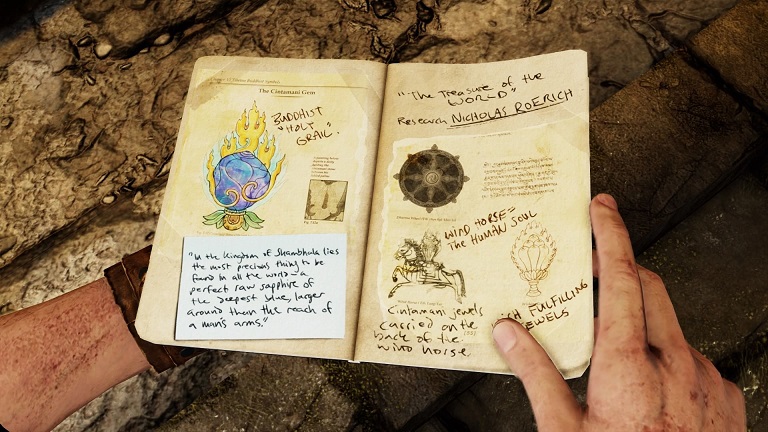 The Cintamani Gem
BUDDHIST
"HOLY
GRAIL".
"In the Kingdom of Shambhala lies
the most precious thing to be
found in all the world – a
perfect raw sapphire of
the deepest blue, larger
around than the reach of
a man's arms."
"The Treasure of the
WORLD"
Research NICHOLAS ROERICH
WIND HORSE =
THE HUMAN SOUL
Cintamani jewels
carried on the
back of the
wind horse
FULFILLING
JEWELS